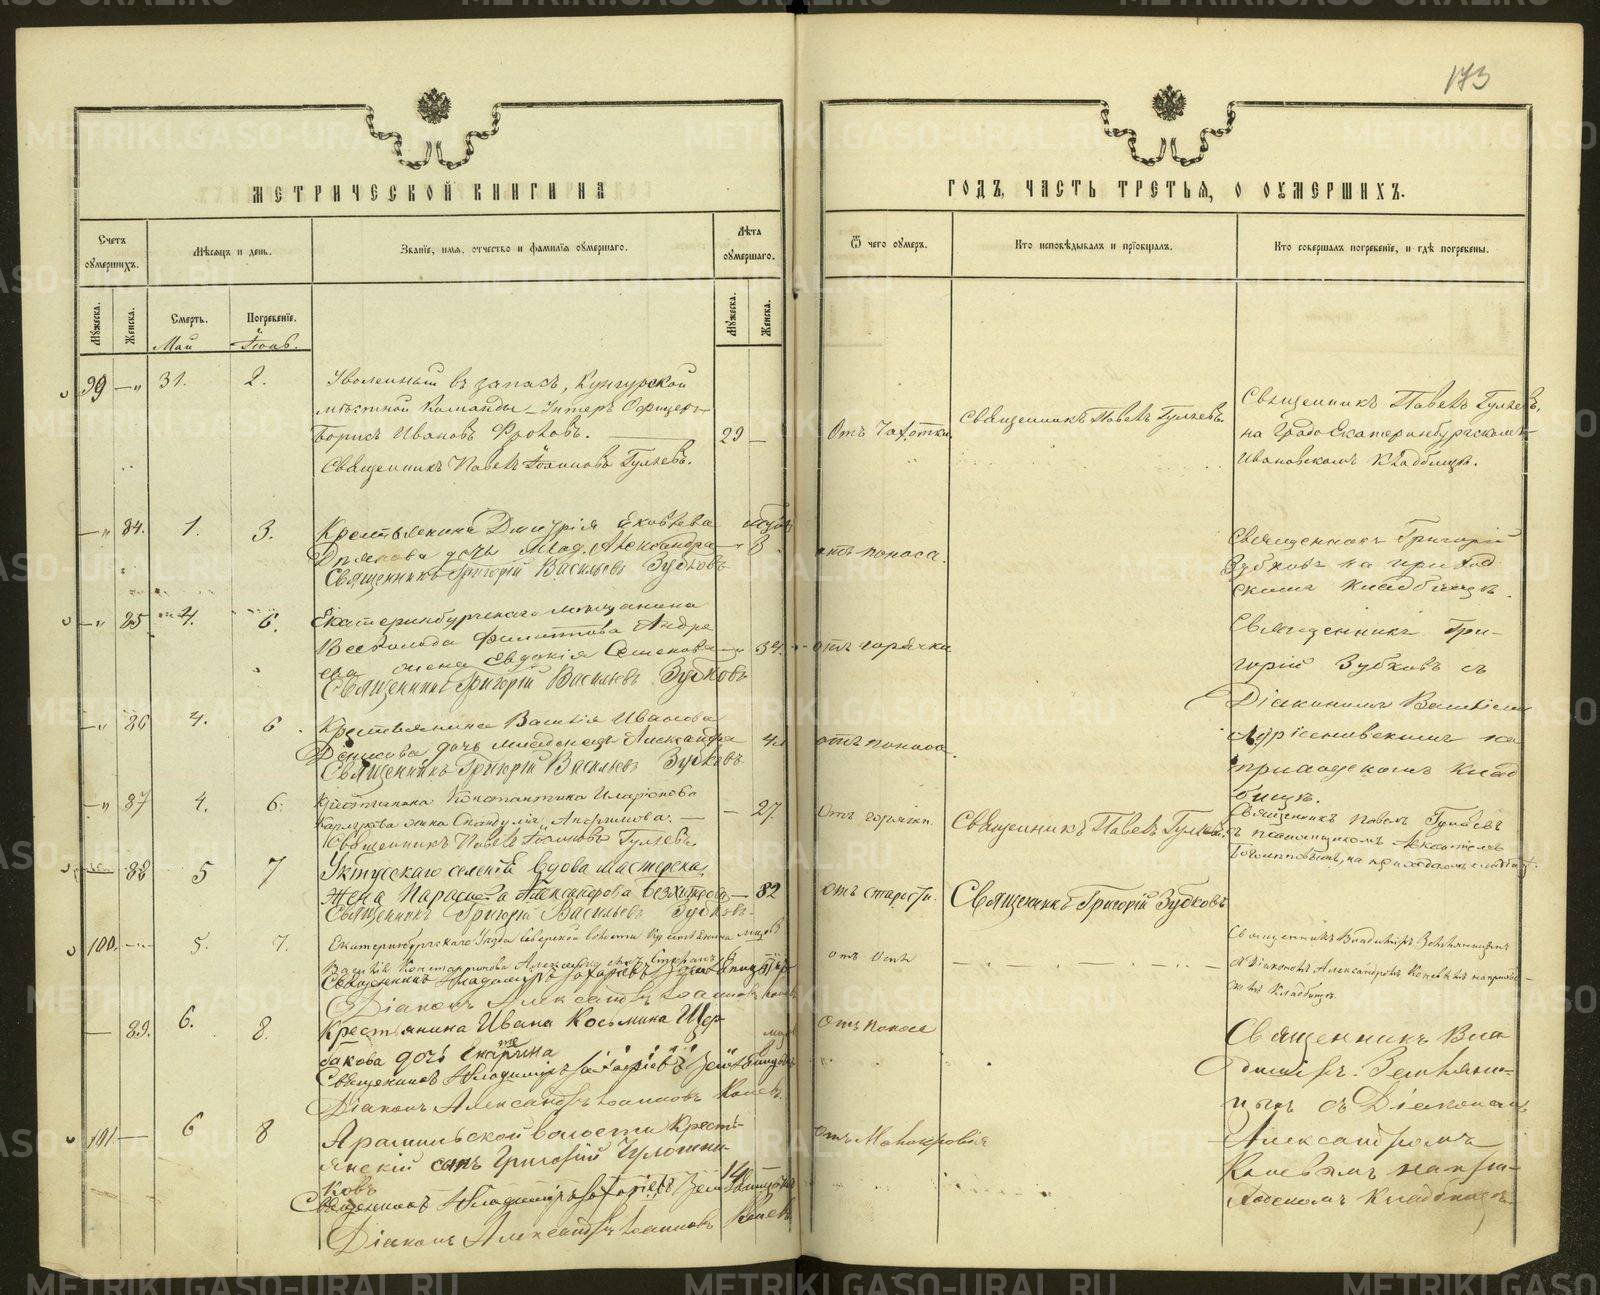 173
МЕТРИЧЕСКОЙ КНИГИ НА
ГОДЪ, ЧАСТЬ ТРЕТЬЯ, О ОУМЕРШИХЪ.
Счетъ оумершихъ.
Мѣсяцъ и день.
Званіе, имя, отчество и фамилія оумершаго.
Лѣта оумершаго.
Ѿ чего оумеръ.
Кто исповѣдывалъ и пріобщалъ.
Кто совершалъ погребеніе, и гдѣ погребены.
Мужеска.
Женска.
Смерть.
Погребеніе.
Мужеска.
Женска.
Май
Іюнь.
99 — „ 31. 2.
Уволенный въ запасъ, Кунгурской
мѣстной Команды Унтеръ Офицеръ
Борисъ Ивановъ Фроловъ. 29 —
Священникъ Павелъ Іоанновъ Гуляевъ.
Отъ Чахотки.
Священникъ Павелъ Гуляевъ.
Священникъ Павелъ Гуляевъ,
на Градо Екатеринбургскомъ
Ивановскомъ Кладбищѣ.
— „ 84. 1. 3.
Крестьянина Дмитрія Яковлева
дочь Млад. Александра 8
Священникъ Григорій Васильевъ Зубковъ
отъ поноса.
Священникъ Григорій
Зубковъ на приход
скомъ кладбищѣ.
— „ 85 4. 6.
Екатеринбургскаго мѣщанина
Всеволода Филиппова Андре
ева жена Евдокія Семенова 34.
Священникъ Григорій Васильевъ Зубковъ
отъ горячки
Священникъ Гри-
горій Зубковъ съ
Діакономъ
на
приходскомъ клад
бищѣ.
— „ 86 4. 6
Крестьянина Василія Иванова
Денисова дочь младенецъ Александра 4
Священникъ Григорій Васильевъ Зубковъ
отъ поноса
— „ 87 4. 6.
Крестьянина Константина Иларіонова
жена — 27
Священникъ Павелъ Іоанновъ Гуляевъ.
Отъ горячки.
Священникъ Павелъ Гуляевъ.
Священникъ Павелъ Гуляевъ
съ псаломщикомъ
на приходскомъ кладбищѣ.
88 5 7
Уктусскаго селенія Вдова мастерска,
жена Параскева Александрова — 82
Священникъ Григорій Васильевъ Зубковъ
отъ старости.
Священникъ Григорій Зубковъ
100. — 5. 7.
Екатеринбургскаго Уѣзда Сѣверской волости Крестьянина
Василія Константинова сынъ
Священникъ Владиміръ Захаріевъ Земляницынъ
Діаконъ Александръ Іоанновъ Коневъ
отъ оспы
Священникъ Владиміръ Землянницынъ
съ Діакономъ Александромъ Коневымъ на приход-
ск. Кладбищѣ
— 89. 6. 8.
Крестьянина Ивана Косьмина Щер-
бакова дочь Екатерина
Священникъ Владиміръ Захаріевъ Землянницынъ
Діаконъ Александръ Іоанновъ Коневъ
Отъ поноса
Священникъ Вла
диміръ Землянни-
цынъ съ Діакономъ
Александромъ
Коневымъ на при-
ходскомъ Кладбищѣ
101. — 6 8
Арамильской волости Кресть-
янскій сынъ Григорій
14
Священникъ Владиміръ Захаріевъ Землянницынъ
Діаконъ Александръ Іоанновъ Коневъ
отъ Малокровія
METRIKI.GASO-URAL.RU